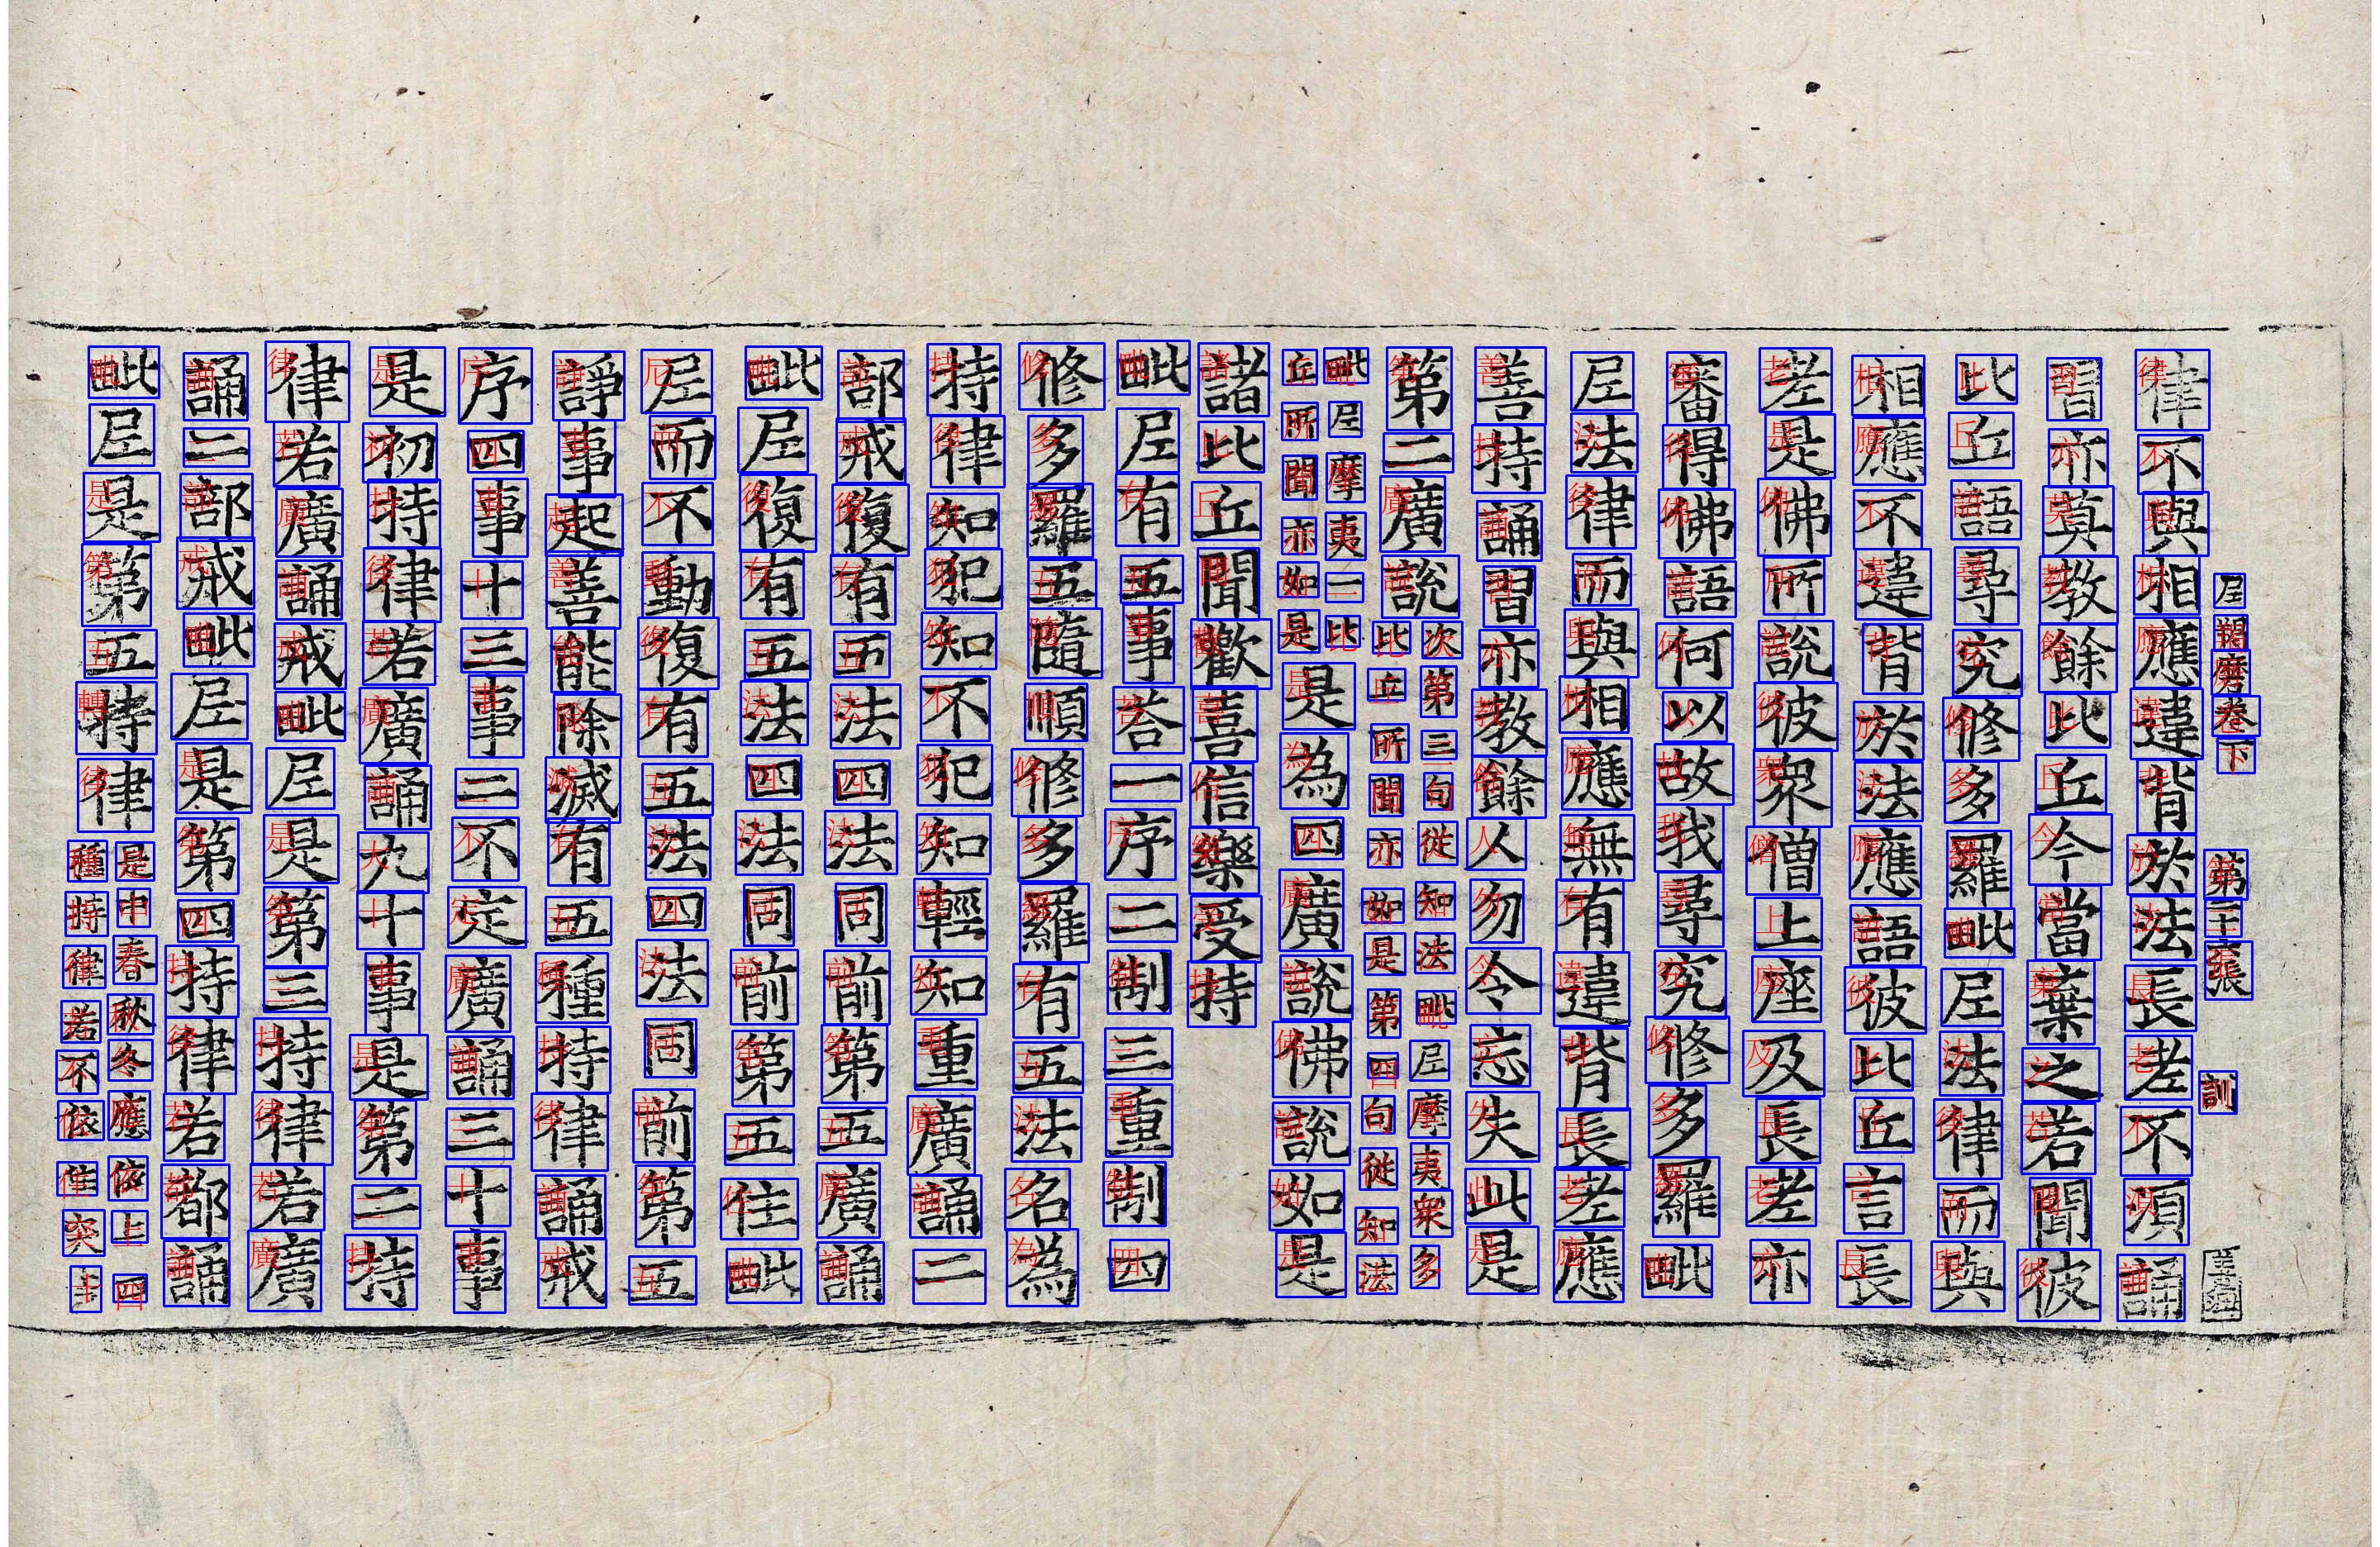 尼羯磨卷下 第二十張 訓
律不與相應違背於法長老不須誦
習亦莫教餘比丘今當棄之若聞彼
比丘語尋究修多羅毗尼法律而與
相應不違背於法應語彼比丘言長
老是佛所說彼衆僧上座及長老亦
審得佛語何以故我尋究修多羅毗
尼法律而與相應無有違背長老應
善持誦習亦教餘人勿令忘失此是
第二廣說
次第三句從知法毗尼摩夷衆多
比丘所聞亦如是第四句從知法
毗尼摩夷一比
丘所聞亦如是
是為四廣說佛說如是
諸比丘聞歡喜信樂受持
毗尼有五事荅一序二制三重制四
修多羅五隨順修多羅有五法名為
持律知犯知不犯知輕知重廣誦二
部戒復有五法四法同前第五廣誦
毗尼復有五法四法同前第五住毗
尼而不動復有五法四法同前第五
諍事起善能除滅有五種持律誦戒
序四事十三事二不定廣誦三十事
是初持律若廣誦九十事是第二持
律若廣誦戒毗尼是第三持律若廣
誦二部戒毗尼是第四持律若都誦
毗尼是第五持律
是中春秋冬應依上四
種持律若不依住突